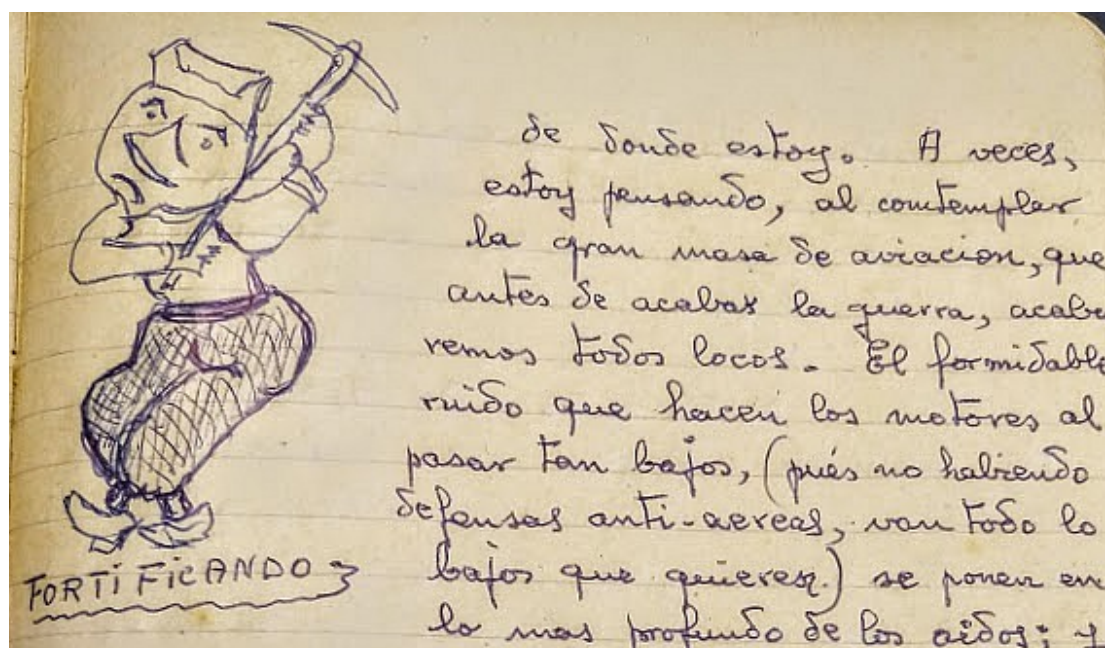 de donde estoy. A veces,
estoy pensando, al comtemplar
la gran masa de aviacion, que
antes de acabar la guerra, acaba
remos todos locos. El formidable
ruido que hacen los motores al
pasar tan bajos, (pués no habiendo
defensas anti-aereas, van todo lo
bajos que quieren.) se ponen en
lo mas profundo de los oidos; y
FORTIFICANDO